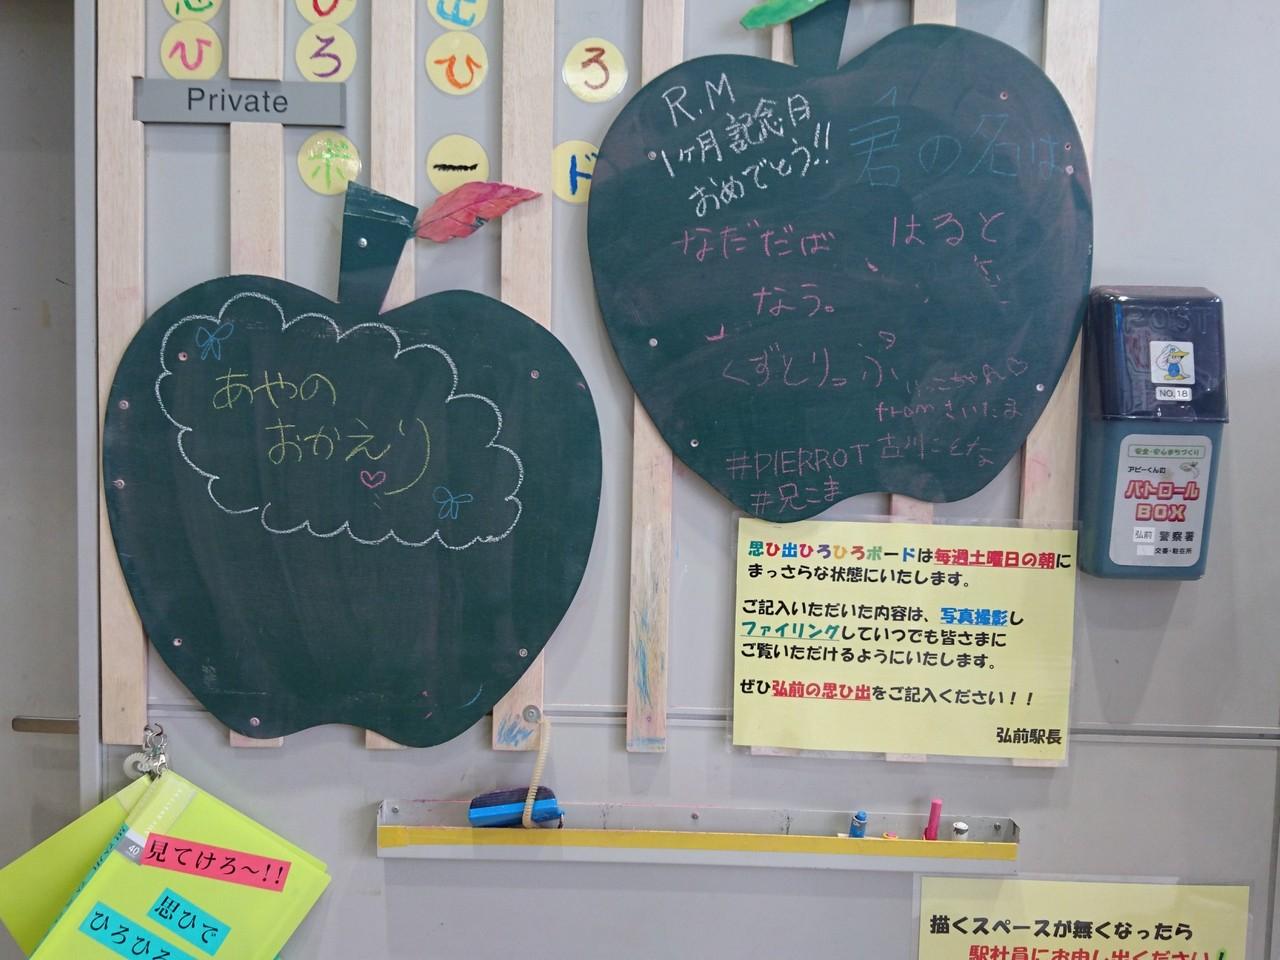 ひろひろ
Private
ボード
R.M
1ヶ月記念日
おめでとう!!
君の名は
なだだば
はると
なう。
くずとりっぷ
fromさいたま
古川ことな
#PIERROT
#兄こま
あやの
おかえり
POST
NO.18
安全・安心まちづくり
アピーくんの
パトロール
BOX
弘前 警察署
交番・駐在所
思ひ出ひろひろボードは毎週土曜日の朝に
まっさらな状態にいたします。
ご記入いただいた内容は、写真撮影し
ファイリングしていつでも皆さまに
ご覧いただけるようにいたします。
ぜひ弘前の思ひ出をご記入ください!!
弘前駅長
40
見てけろ~!!
思ひで
ひろひろ
描くスペースが無くなったら
駅社員にお申し出ください!